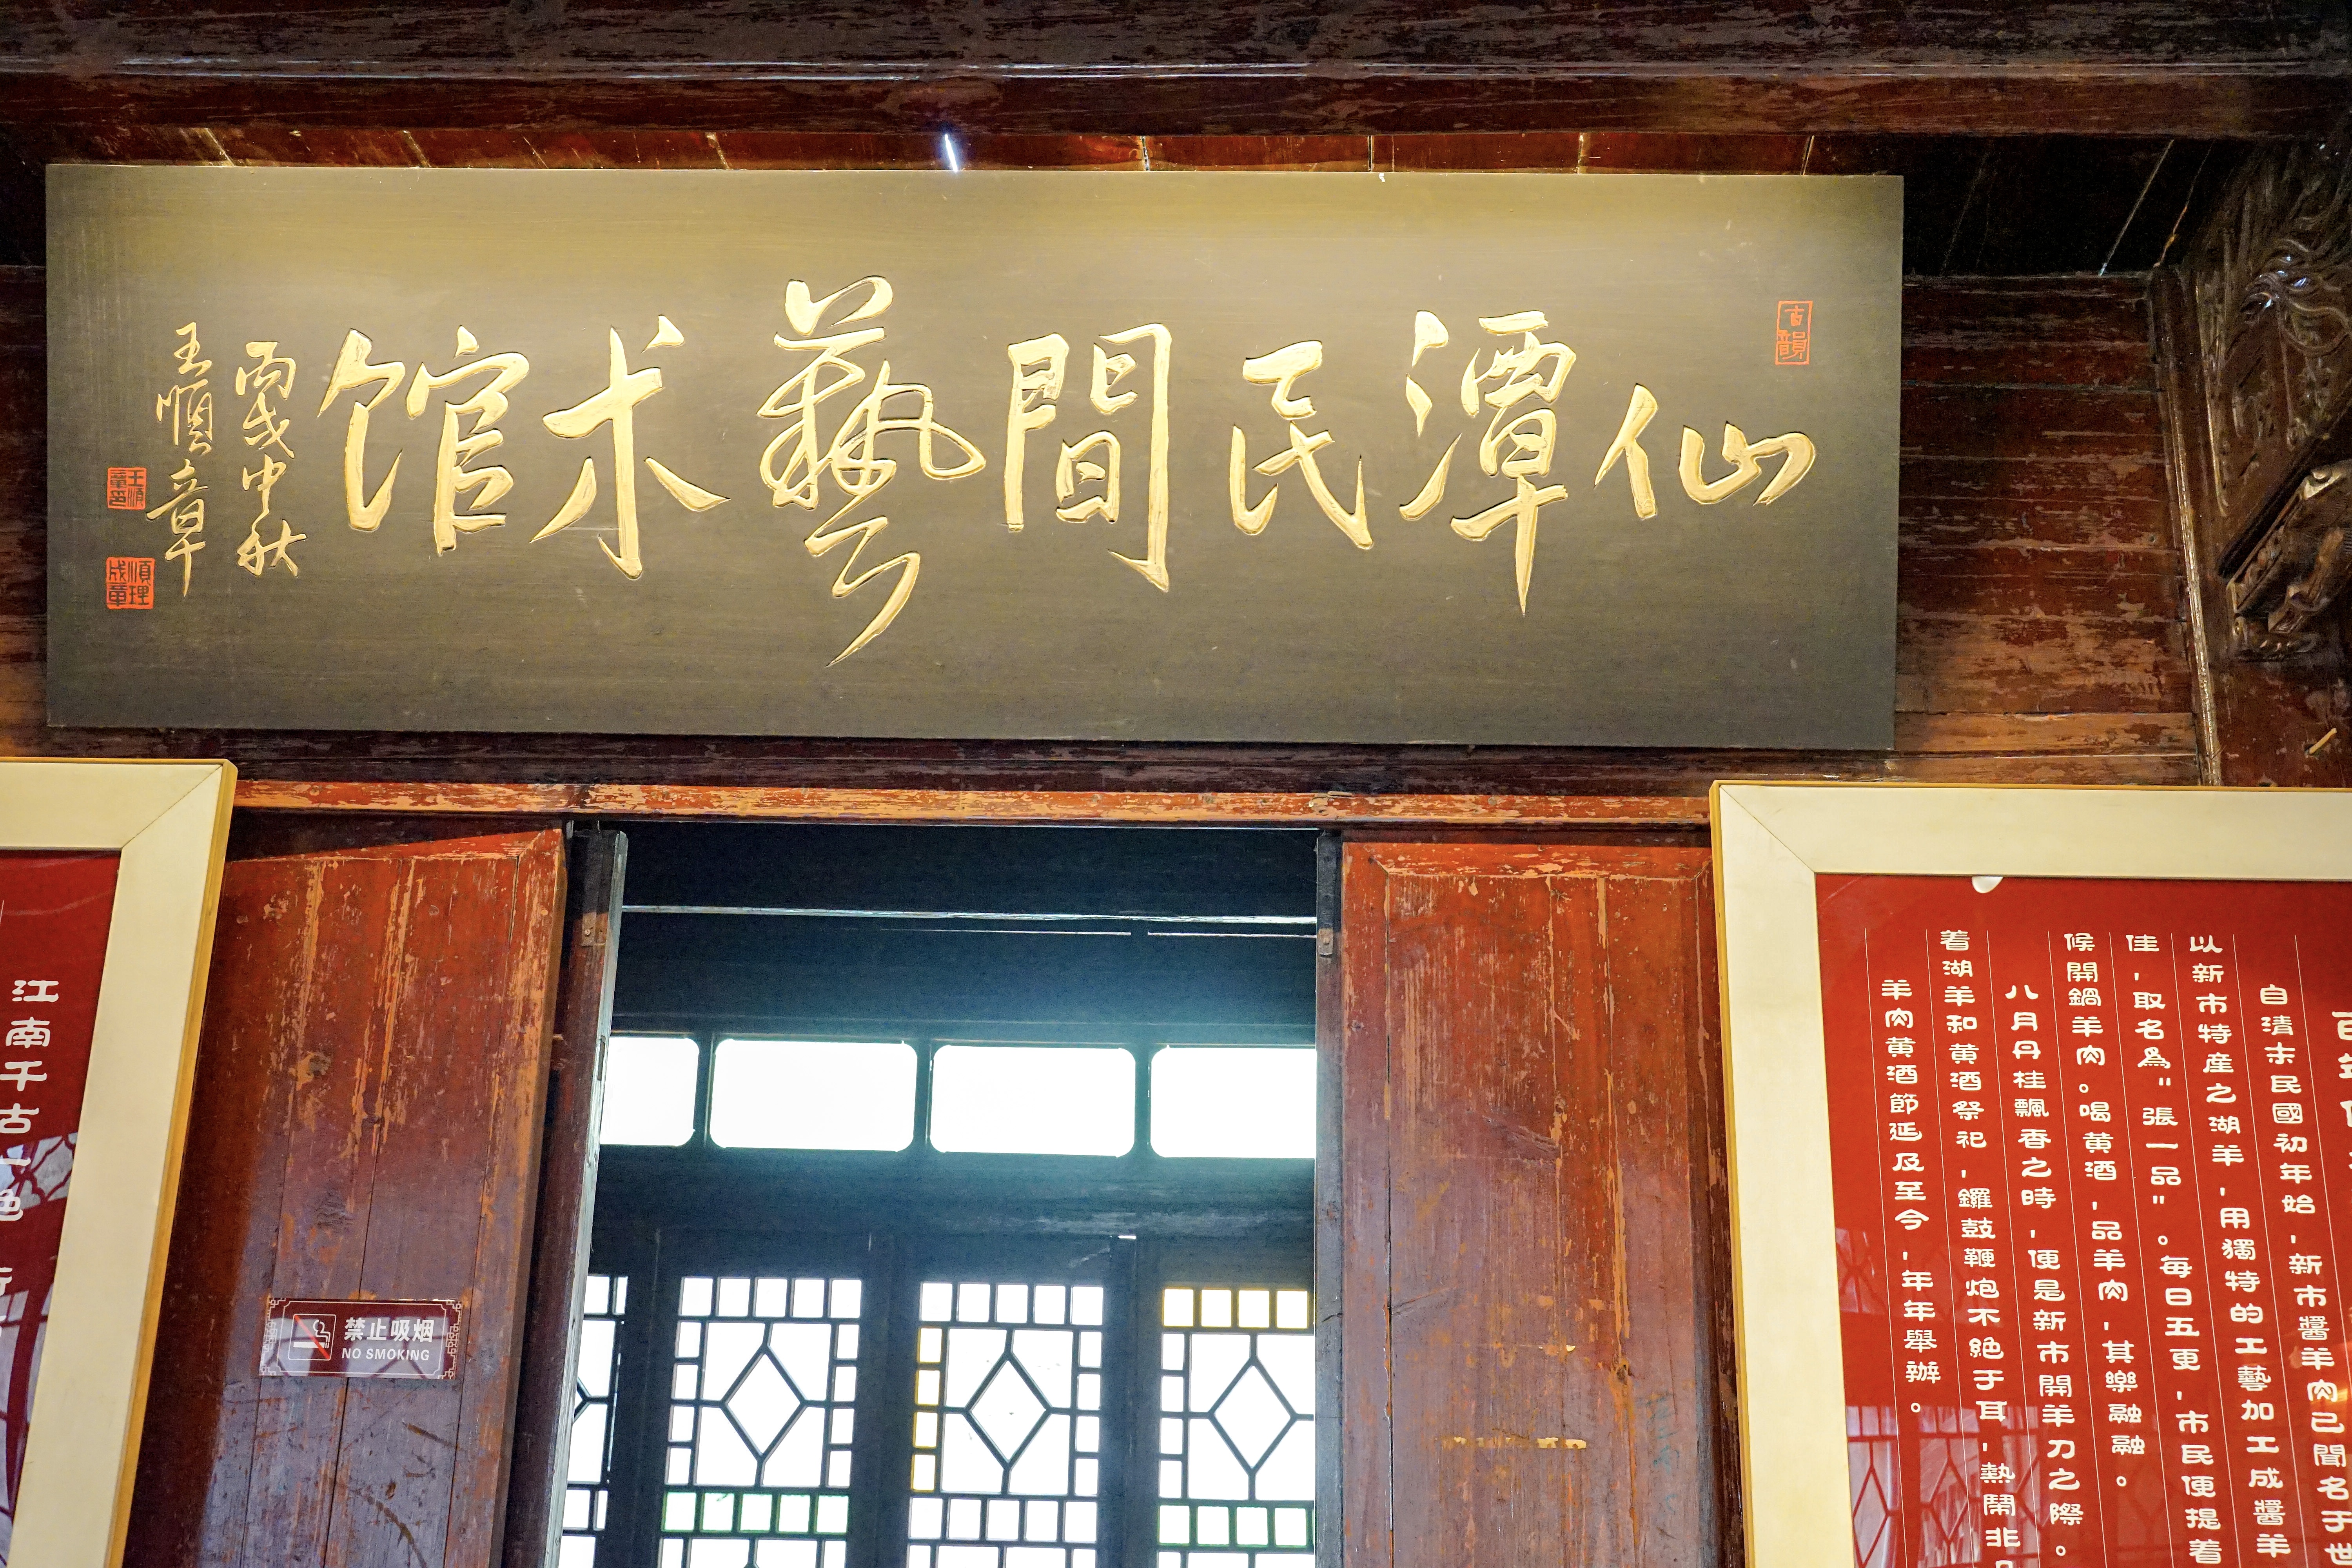 仙潭民間藝术馆
丙戌中秋
王順章
古韻
王順章印
順理成章
江南千古一絶
禁止吸烟
NO SMOKING
自清末民國初年始，新市醬羊肉已聞名于世
以新市特産之湖羊，用獨特的工藝加工成醬羊
佳，取名為"張一品"。每日五更，市民便提着
候開鍋羊肉。喝黄酒，品羊肉，其樂融融。
八月丹桂飄香之時，便是新市開羊刀之際。
着湖羊和黄酒祭祀，鑼鼓鞭炮不絶于耳，熱鬧非
羊肉黄酒節延及至今，年年舉辦。